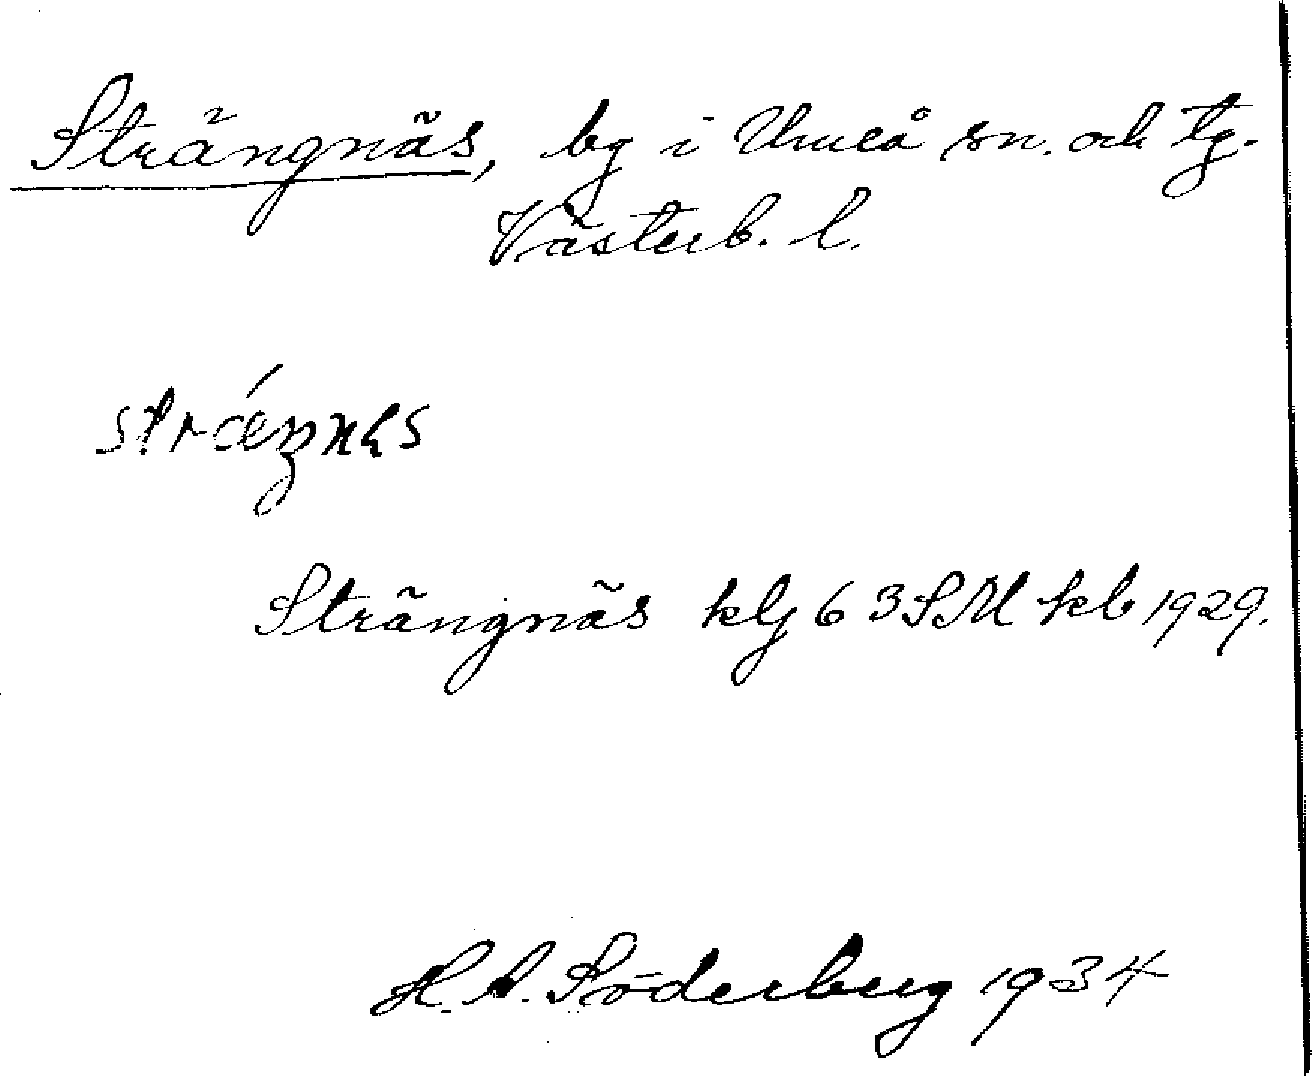 Strängnäs, by i Umeå sn. och tg.
Västerb. l.
stræ´ŋnes
Strängnäs klj 63 SM kb 1929.
H. A. Söderberg 1934